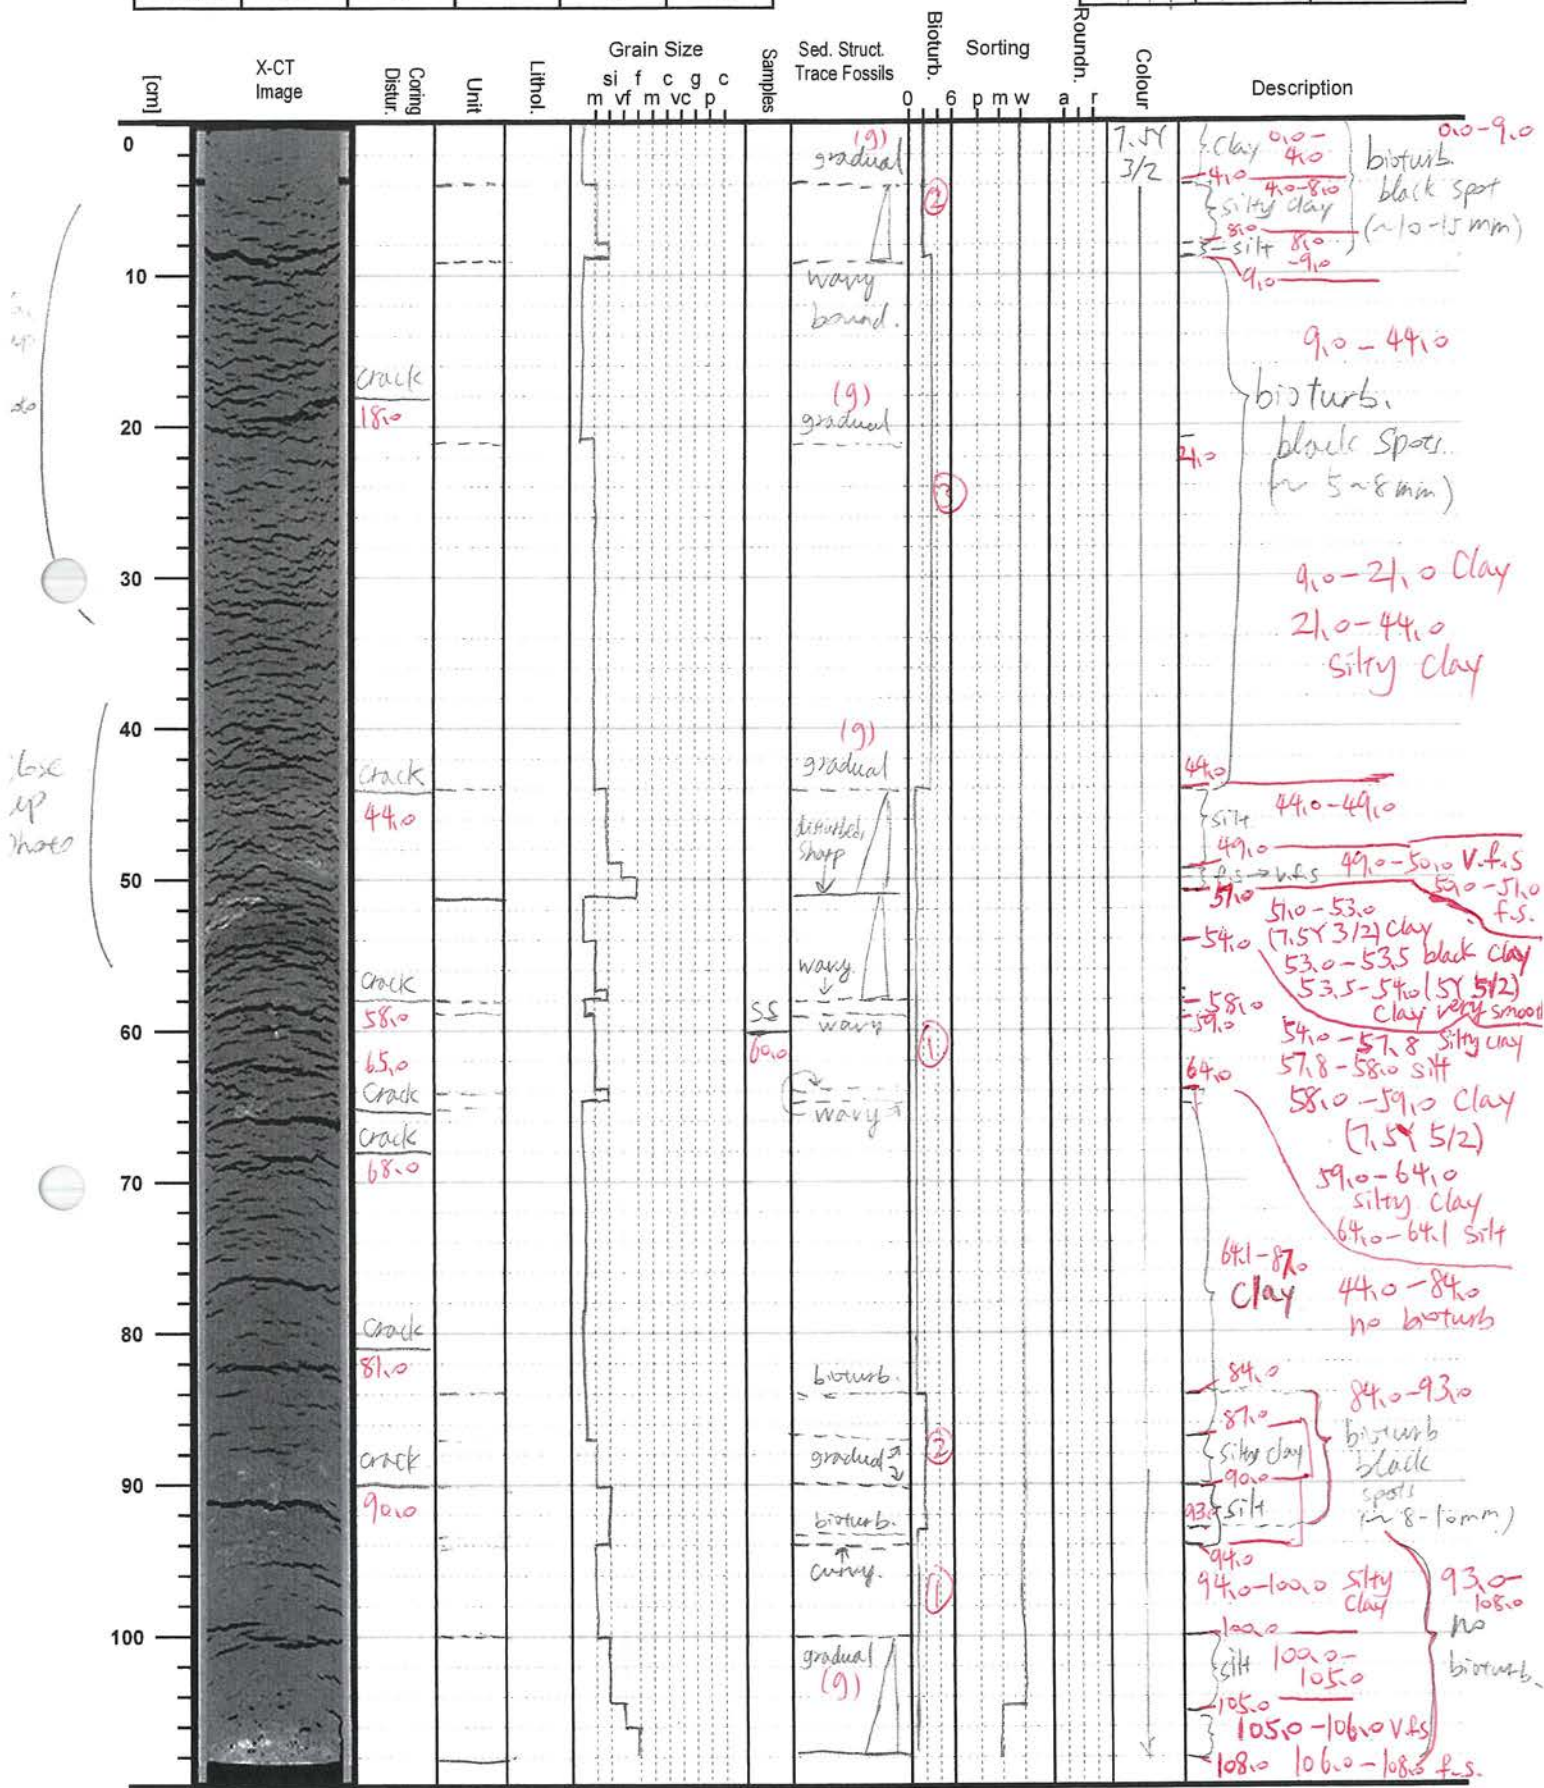 [cm]
X-CT
Image
Coring
Distur.
Unit
Lithol.
Grain Size
si f c g c
m vf m vc p
Samples
Sed. Struct.
Trace Fossils
Bioturb.
0 6
Sorting
p m w
Roundn.
a r
Colour
Description
0
10
20
30
40
50
60
70
80
90
100
lose
up
photo
crack
18.0
crack
44.0
crack
58.0
65.0
crack
crack
68.0
crack
81.0
crack
90.0
SS
60.0
(g)
gradual
wavy
bound.
(g)
gradual
(g)
gradual
disturbed,
sharp
wavy
wavy
wavy
bioturb.
gradual
bioturb.
curvy.
gradual
(g)
2
3
1
2
1
7.5Y
3/2
clay 0.0-
4.0
4.0
4.0-8.0
silty clay
8.0
silt 8.0
-9.0
9.0
0.0-9.0
bioturb.
black spot
(~10-15mm)
9.0-44.0
bioturb.
black spots.
(~5~8mm)
21.0
9.0-21.0 Clay
21.0-44.0
Silty Clay
44.0
silt
44.0-49.0
49.0
49.0-50.0 V.f.s
f.s → v.f.s
50.0-51.0
f.s.
51.0
51.0-53.0
(7.5Y 3/2) Clay
54.0
53.0-53.5 black clay
53.5-54.0 (5Y 5/2)
Clay very smooth
58.0
59.0
54.0-57.8 Silty clay
57.8-58.0 silt
64.0
58.0-59.0 Clay
(7.5Y 5/2)
59.0-64.0
silty clay
64.0-64.1 silt
64.1-87.0
Clay
44.0-84.0
no bioturb
84.0
84.0-93.0
87.0
silty clay
bioturb
black
spots
(~8-10mm)
90.0
93.0
silt
94.0
94.0-100.0 Silty
Clay
93.0-
108.0
no
bioturb.
100.0
silt 100.0-
105.0
105.0
105.0-106.0 v.f.s
108.0 106.0-108.0 f.s.